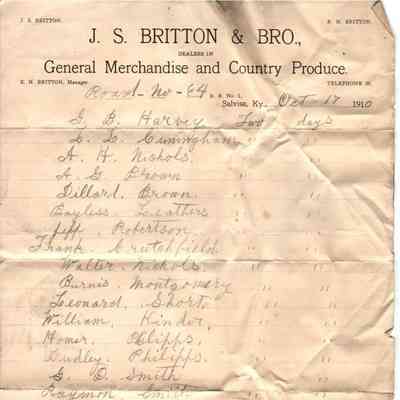 J. S. BRITTON. E. N. BRITTON.
J. S. BRITTON & BRO.,
DEALERS IN
General Merchandise and Country Produce.
E. N. BRITTON, Manager. TELEPHONE
Road No - 64 R. R. No. 1,
Salvisa, Ky., Oct - 17 1910
G. B. Harvey Two days
L. L. Cuningham " "
A. H. Nichols " "
A. G. Brown " "
Dillard Brown " "
Bayless Leathers " "
Jeff Robertson " "
Frank Crutchfield " "
Walter Nichols " "
Burnis Montgomery " "
Leonard Short " "
William Kinder " "
Homer Phlipps " "
Dudley Philipps " "
G. D. Smith " "
Raymon Smith " "